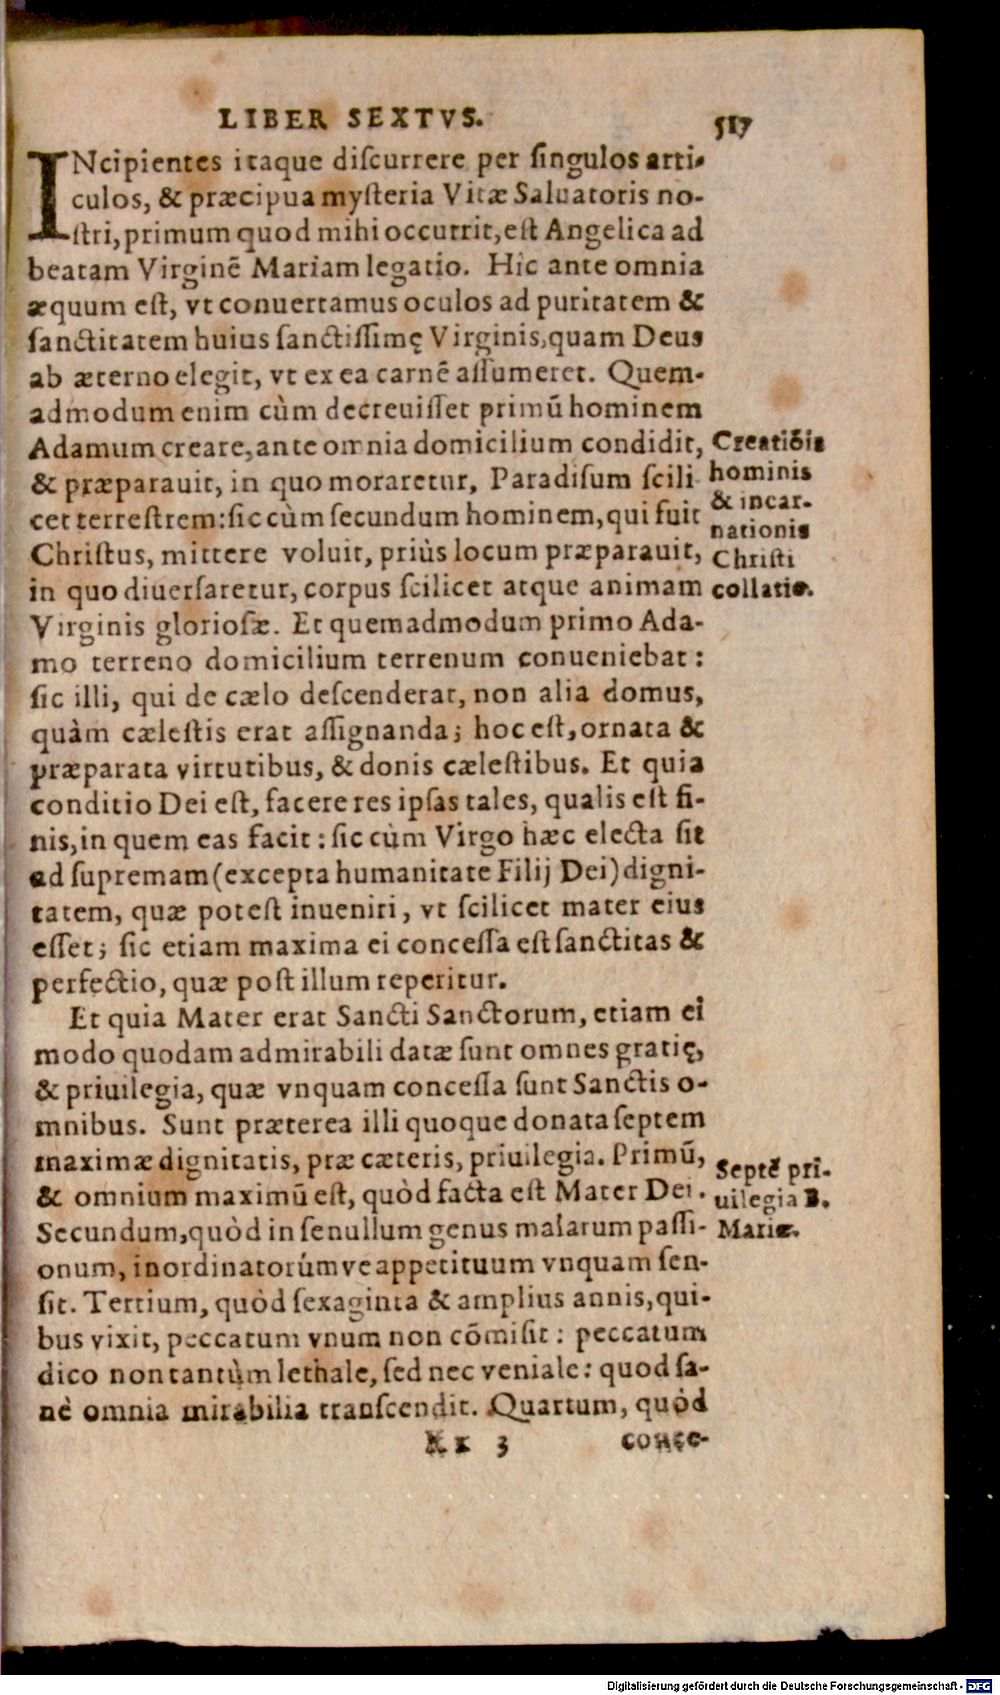 LIBER SEXTVS. 517
INcipientes itaque diſcurrere per ſingulos arti-
culos, & præcipua myſteria Vitæ Saluatoris no-
ſtri, primum quod mihi occurrit, eſt Angelica ad
beatam Virginē Mariam legatio. Hic ante omnia
æquum eſt, vt conuertamus oculos ad puritatem &
ſanctitatem huius ſanctiſſimę Virginis, quam Deus
ab æterno elegit, vt ex ea carnē aſſumeret. Quem-
admodum enim cùm decreuiſſet primū hominem
Adamum creare, ante omnia domicilium condidit,
& præparauit, in quo moraretur, Paradiſum ſcili
cet terreſtrem: ſic cùm ſecundum hominem, qui fuit
Chriſtus, mittere voluit, priùs locum præparauit,
in quo diuerſaretur, corpus ſcilicet atque animam
Virginis glorioſæ. Et quemadmodum primo Ada-
mo terreno domicilium terrenum conueniebat:
ſic illi, qui de cælo deſcenderat, non alia domus,
quàm cæleſtis erat aſſignanda; hoc eſt, ornata &
præparata virtutibus, & donis cæleſtibus. Et quia
conditio Dei eſt, facere res ipſas tales, qualis eſt fi-
nis, in quem eas facit: ſic cùm Virgo hæc electa ſit
ad ſupremam (excepta humanitate Filij Dei) digni-
tatem, quæ poteſt inueniri, vt ſcilicet mater eius
eſſet; ſic etiam maxima ei conceſſa eſt ſanctitas &
perfectio, quæ poſt illum reperitur.
Et quia Mater erat Sancti Sanctorum, etiam ei
modo quodam admirabili datæ ſunt omnes gratię,
& priuilegia, quæ vnquam conceſſa ſunt Sanctis o-
mnibus. Sunt præterea illi quoque donata ſeptem
maximæ dignitatis, præ cæteris, priuilegia. Primū,
& omnium maximū eſt, quòd facta eſt Mater Dei.
Secundum, quòd in ſe nullum genus malarum paſſi-
onum, inordinatorúmve appetituum vnquam ſen-
ſit. Tertium, quòd ſexaginta & amplius annis, qui-
bus vixit, peccatum vnum non cōmiſit: peccatum
dico non tantùm lethale, ſed nec veniale: quod ſa-
nè omnia mirabilia tranſcendit. Quartum, quòd
Kk 3 conce-
Creatiōis
hominis
& incar-
nationis
Chriſti
collatio.
Septē pri-
uilegia B.
Mariæ.
Digitalisierung gefördert durch die Deutsche Forschungsgemeinschaft - DFG